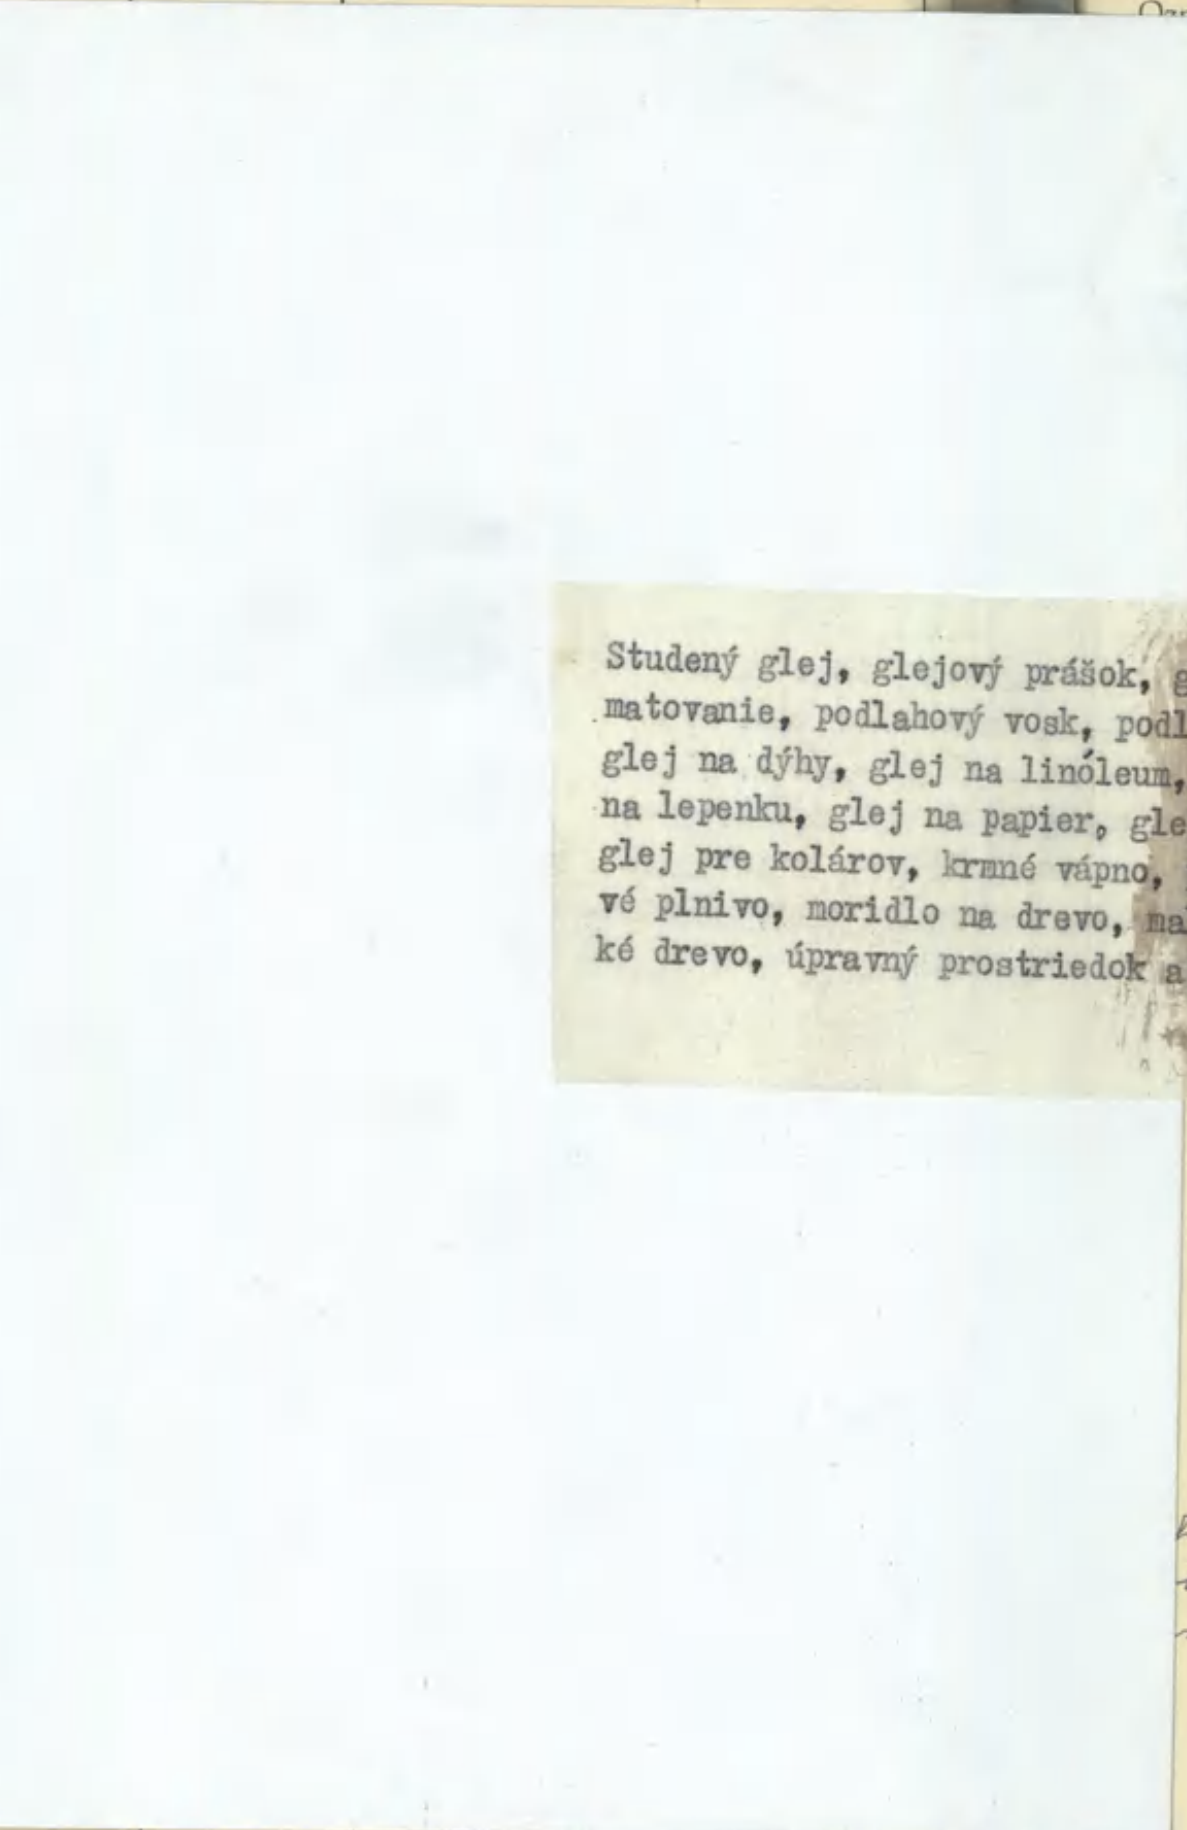 Studený glej, glejový prášok,
matovanie, podlahový vosk,
glej na dýhy, glej na linóleum,
na lepenku, glej na papier,
glej pre kolárov, krmné vápno,
vé plnivo, moridlo na drevo,
ké drevo, úpravný prostriedok